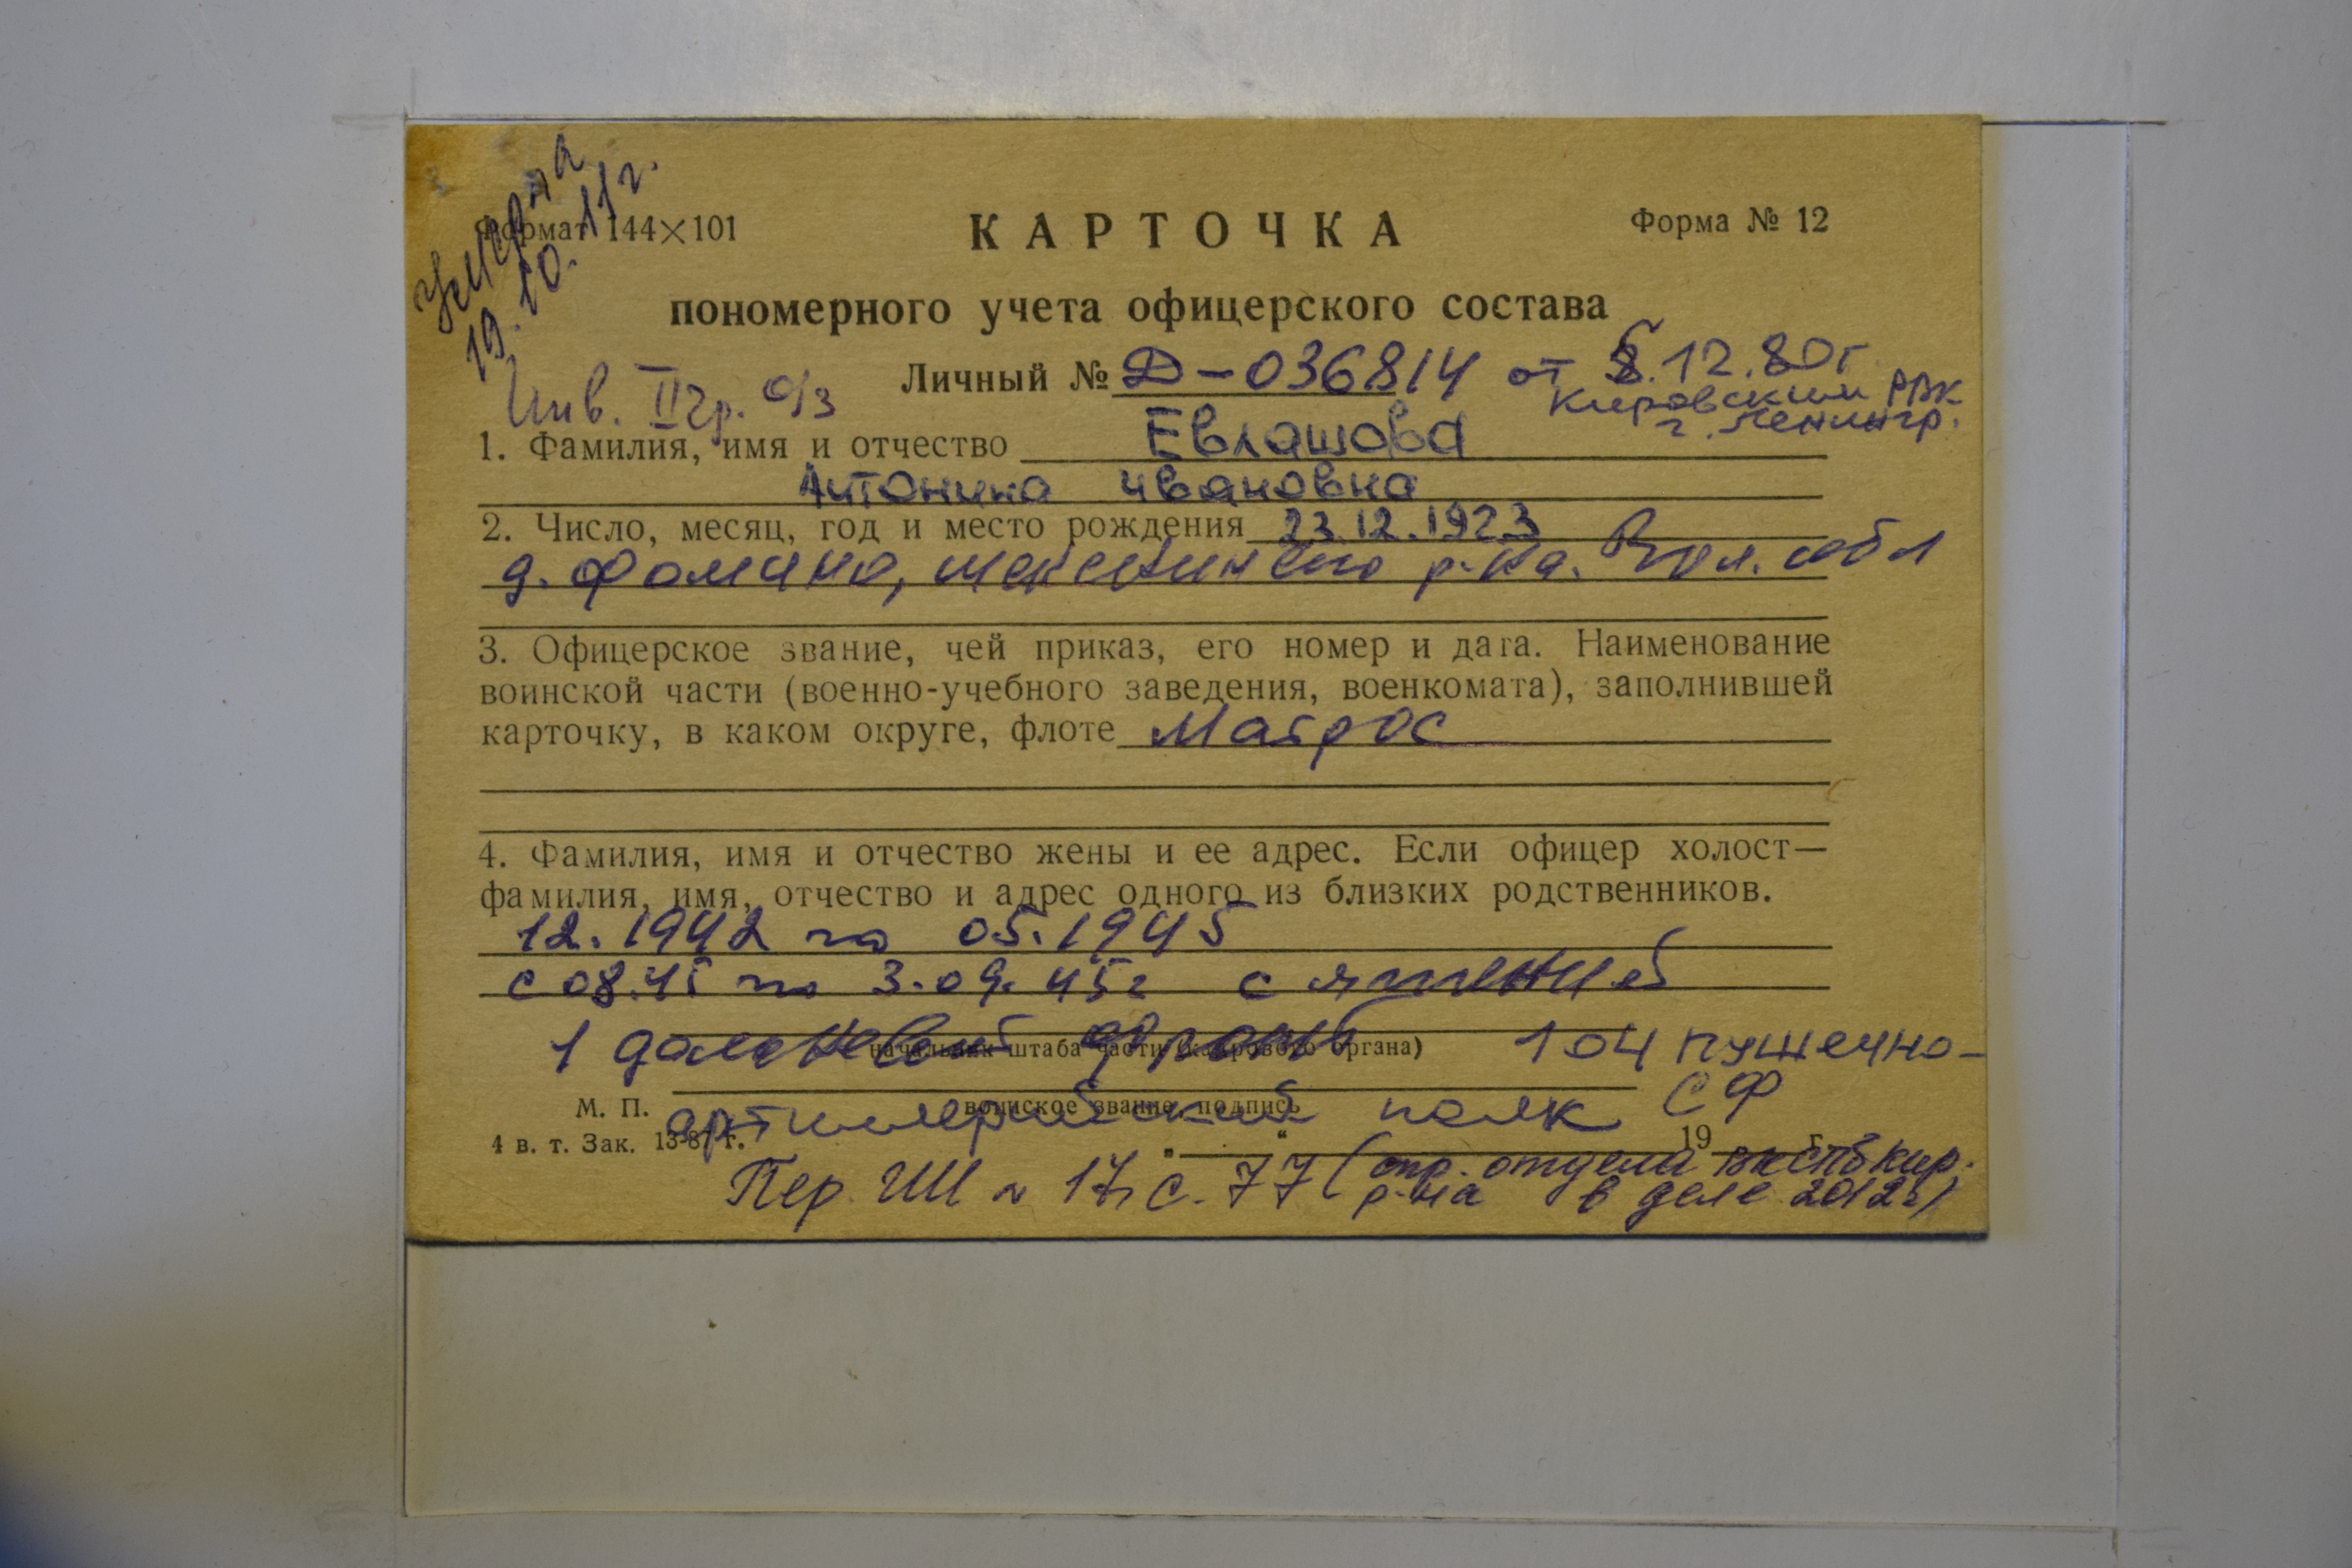 умерла
19.10.11г.
Формат 144×101
КАРТОЧКА
Форма № 12
пономерного учета офицерского состава
Личный № Д-036814 от 8.12.80г
Кировским РВК
г. Ленингр.
Инв. II гр. о/з
1. Фамилия, имя и отчество Евлашова
Антонина Ивановна
2. Число, месяц, год и место рождения 23.12.1923
д. Фомино, Шекснинского р-на. Вол. обл
3. Офицерское звание, чей приказ, его номер и дата. Наименование
воинской части (военно-учебного заведения, военкомата), заполнившей
карточку, в каком округе, флоте Матрос
4. Фамилия, имя и отчество жены и ее адрес. Если офицер холост—
фамилия, имя, отчество и адрес одного из близких родственников.
12.1942 по 05.1945
с 08.45 по 3.09.45г с японией
1 дальневост фронт 104 пушечно-
начальник штаба части (кадрового органа)
артиллерийский полк СФ
М. П.
воинское звание, подпись
4 в. т. Зак. 13-87 г.
" " 19 г.
Пер. ШМ 17, с. 77 (отдела кир.
р-на в деле 2012г)